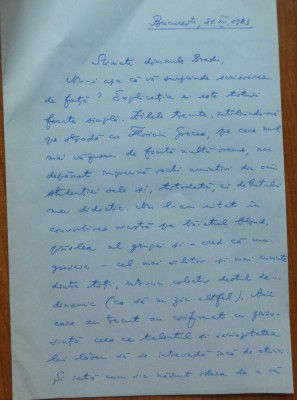 București, 21.III.1983
Stimate domnule Bradu,
Nu-i așa că vă surprinde scrisoarea
de față? Explicația ei este totuși
foarte simplă. Zilele trecute, întîlnindu-mă
pe stradă cu Florian Grecea, pe care nu-l
mai văzusem de foarte multă vreme, am
depănat împreună vechi amintiri din anii
studenției sale și, totodată, ai debutului
meu didactic. Nu l-am uitat în
convorbirea noastră pe băiatul blond,
prîslea al grupei și - cred că nu
greșesc - cel mai silitor și mai
dintre toți, într-un colectiv destul de...
dinamic (ca să nu zic altfel). Anii
care au trecut au confirmat cu
ceea ce talentul și seriozitatea
lui lăsau să se întrevadă încă de atunci.
Și iată cum s-a născut ideea de a vă